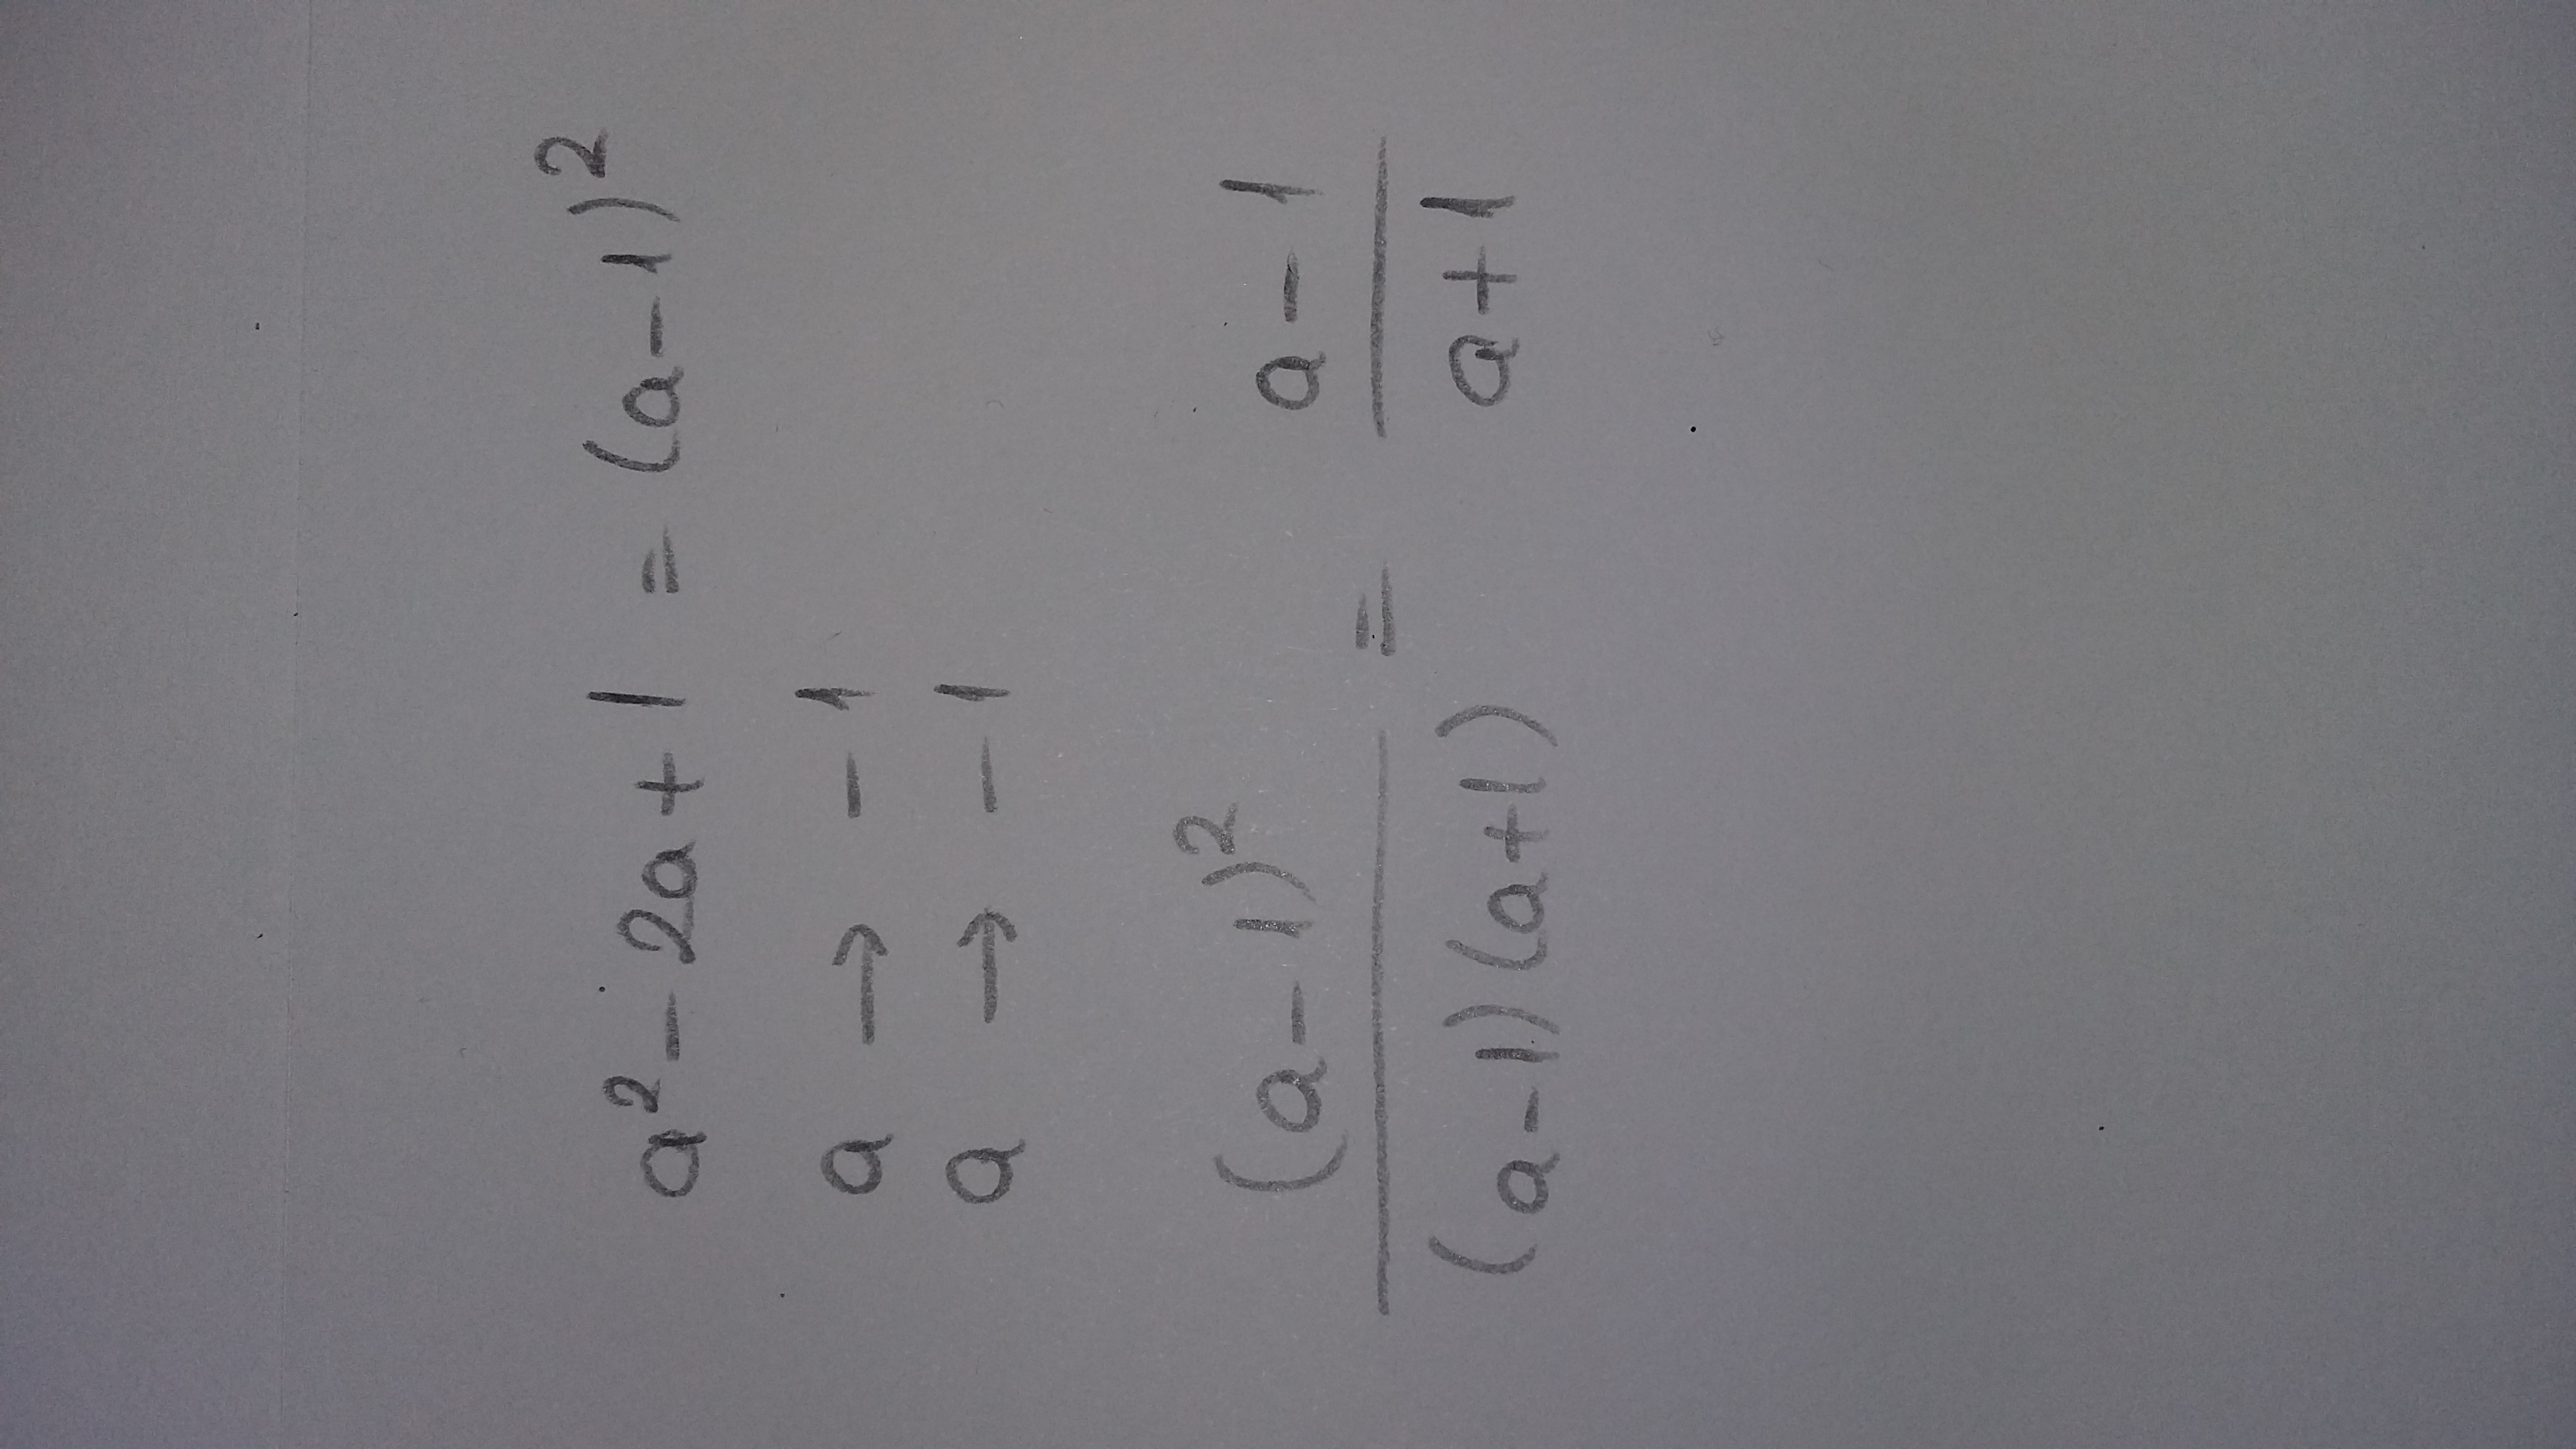 a² - 2a + 1 = (a - 1)²
a → - 1
a → - 1
(a - 1)² / (a - 1)(a + 1) = a - 1 / a + 1